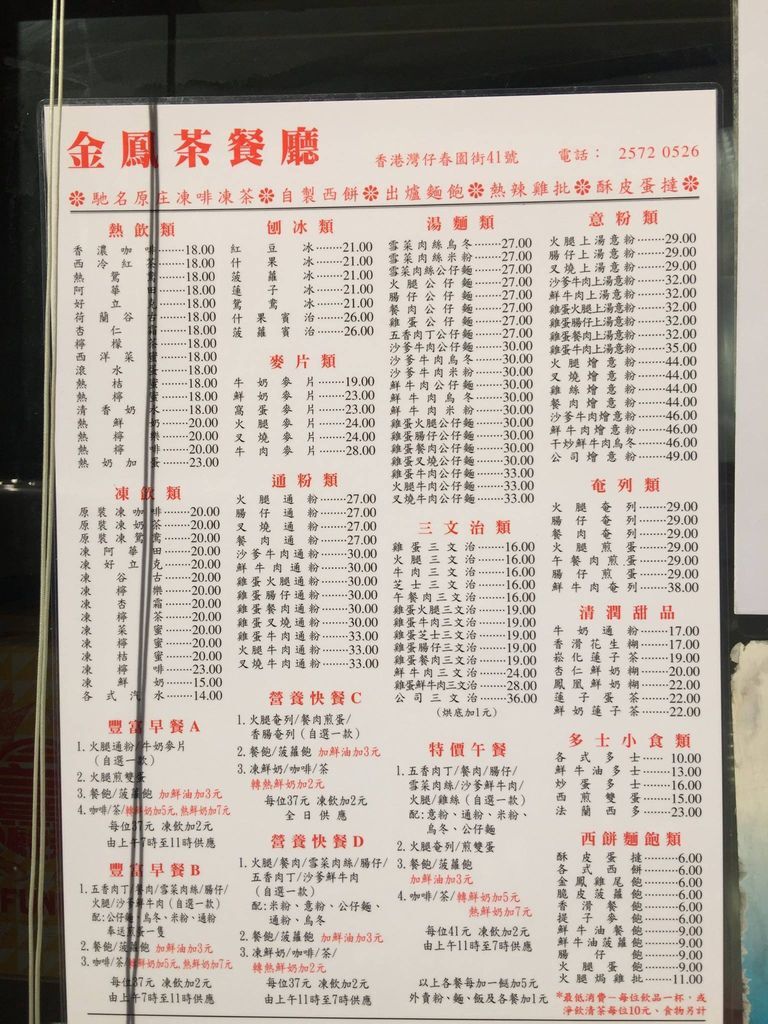 金鳳茶餐廳
香港灣仔春園街41號 電話： 2572 0526
❇馳名原庄凍啡凍茶❇自製西餅❇出爐麵飽❇熱辣雞批❇酥皮蛋撻❇
熱飲類
香濃咖啡……18.00
西冷紅茶……18.00
熱鴛鴦……18.00
阿華田……18.00
好立克……18.00
荷蘭谷古……18.00
杏仁霜……18.00
檸檬茶……18.00
西洋菜蜜……18.00
滾水蛋……18.00
熱桔蜜……18.00
熱檸蜜……18.00
清香奶水……18.00
熱鮮奶……20.00
熱檸樂……20.00
熱檸啡……20.00
熱奶加蛋……23.00
凍飲類
原裝凍咖啡……20.00
原裝凍奶茶……20.00
原裝凍鴛鴦……20.00
凍阿華田……20.00
凍好立克……20.00
凍谷古……20.00
凍檸樂……20.00
凍杏霜……20.00
凍檸茶……20.00
凍菜蜜……20.00
凍檸蜜……20.00
凍桔蜜……20.00
凍檸啡……23.00
凍鮮奶……15.00
各式汽水……14.00
豐富早餐A
1. 火腿通粉/牛奶麥片
（自選一款）
2. 火腿煎雙蛋
3. 餐飽/菠蘿飽 加鮮油加3元
4. 咖啡/茶/轉鮮奶加5元, 熱鮮奶加7元
每位37元 凍飲加2元
由上午7時至11時供應
豐富早餐B
1. 五香肉丁/餐肉/雪菜肉絲/腸仔/
火腿/沙爹鮮牛肉（自選一款）
配:公仔麵、烏冬、米粉、通粉
奉送煎蛋一隻
2. 餐飽/菠蘿飽 加鮮油加3元
3. 咖啡/茶/轉鮮奶加5元, 熱鮮奶加7元
每位37元 凍飲加2元
由上午7時至11時供應
刨冰類
紅豆冰……21.00
什果冰……21.00
菠蘿冰……21.00
蓮子冰……21.00
鴛鴦冰……21.00
什果賓治……26.00
菠蘿賓治……26.00
麥片類
牛奶麥片……19.00
鮮奶麥片……23.00
窩蛋麥片……23.00
火腿麥片……24.00
叉燒麥片……24.00
牛肉麥片……28.00
通粉類
火腿通粉……27.00
腸仔通粉……27.00
叉燒通粉……27.00
餐肉通粉……27.00
沙爹牛肉通粉……30.00
鮮牛肉通粉……30.00
雞蛋火腿通粉……30.00
雞蛋腸仔通粉……30.00
雞蛋餐肉通粉……30.00
雞蛋叉燒通粉……30.00
雞蛋牛肉通粉……33.00
火腿牛肉通粉……33.00
叉燒牛肉通粉……33.00
營養快餐C
1. 火腿奄列/餐肉煎蛋/
香腸奄列（自選一款）
2. 餐飽/菠蘿飽 加鮮油加3元
3. 凍鮮奶/咖啡/茶
轉熱鮮奶加2元
每位37元 凍飲加2元
全日供應
營養快餐D
1. 火腿/餐肉/雪菜肉絲/腸仔/
五香肉丁/沙爹鮮牛肉
（自選一款）
配:米粉、意粉、公仔麵、
通粉、烏冬
2. 餐飽/菠蘿飽 加鮮油加3元
3. 凍鮮奶/咖啡/茶/
轉熱鮮奶加2元
每位37元 凍飲加2元
由上午11時至下午7時供應
湯麵類
雪菜肉絲烏冬……27.00
雪菜肉絲米粉……27.00
雪菜肉絲公仔麵……27.00
火腿公仔麵……27.00
腸仔公仔麵……27.00
餐肉公仔麵……27.00
雞蛋公仔麵……27.00
五香肉丁公仔麵……27.00
沙爹牛肉公仔麵……30.00
沙爹牛肉烏冬……30.00
沙爹牛肉米粉……30.00
鮮牛肉公仔麵……30.00
鮮牛肉烏冬……30.00
鮮牛肉米粉……30.00
雞蛋火腿公仔麵……30.00
雞蛋腸仔公仔麵……30.00
雞蛋餐肉公仔麵……30.00
雞蛋叉燒公仔麵……30.00
雞蛋牛肉公仔麵……33.00
火腿牛肉公仔麵……33.00
叉燒牛肉公仔麵……33.00
三文治類
雞蛋三文治……16.00
火腿三文治……16.00
牛肉三文治……16.00
芝士三文治……16.00
午餐肉三文治……16.00
雞蛋火腿三文治……19.00
雞蛋牛肉三文治……19.00
雞蛋芝士三文治……19.00
雞蛋腸仔三文治……19.00
雞蛋餐肉三文治……19.00
鮮牛肉三文治……24.00
雞蛋鮮牛肉三文治……28.00
公司三文治……36.00
（烘底加1元）
特價午餐
1. 五香肉丁/餐肉/腸仔/
雪菜肉絲/沙爹鮮牛肉/
火腿/雞絲（自選一款）
配:意粉、通粉、米粉、
烏冬、公仔麵
2. 火腿奄列/煎雙蛋
3. 餐飽/菠蘿飽
加鮮油加3元
4. 咖啡/茶/轉鮮奶加5元
熱鮮奶加7元
每位41元 凍飲加2元
由上午11時至7時供應
以上各餐每加一餸加5元
外賣粉、麵、飯及各餐加1元
意粉類
火腿上湯意粉……29.00
腸仔上湯意粉……29.00
叉燒上湯意粉……29.00
沙爹牛肉上湯意粉……32.00
鮮牛肉上湯意粉……32.00
雞蛋火腿上湯意粉……32.00
雞蛋腸仔上湯意粉……32.00
雞蛋牛肉上湯意粉……35.00
火腿燴意粉……44.00
叉燒燴意粉……44.00
雞絲燴意粉……44.00
餐肉燴意粉……44.00
沙爹牛肉燴意粉……46.00
鮮牛肉燴意粉……46.00
干炒鮮牛肉烏冬……46.00
公司燴意粉……49.00
奄列類
火腿奄列……29.00
腸仔奄列……29.00
餐肉奄列……29.00
火腿煎蛋……29.00
午餐肉煎蛋……29.00
腸仔煎蛋……29.00
鮮牛肉奄列……38.00
清潤甜品
牛奶通粉……17.00
香滑花生糊……17.00
崧化蓮子茶……19.00
杏仁鮮奶糊……20.00
鳳凰鮮奶糊……22.00
蓮子蛋茶……22.00
鮮奶蓮子茶……22.00
多士小食類
各式多士……10.00
鮮牛油多士……13.00
炒蛋多士……16.00
西煎雙蛋……15.00
法蘭西多士……23.00
西餅麵飽類
酥皮蛋撻……6.00
各式西餅……6.00
金鳳雞尾飽……6.00
脆皮菠蘿飽……6.00
香滑餐飽……6.00
提子麥飽……6.00
鮮牛油餐飽……9.00
鮮牛油菠蘿飽……9.00
腸仔飽……9.00
火腿蛋飽……9.00
火腿焗雞批……11.00
*最低消費－每位飲品一杯，或
淨飲清茶每位10元、食物另計